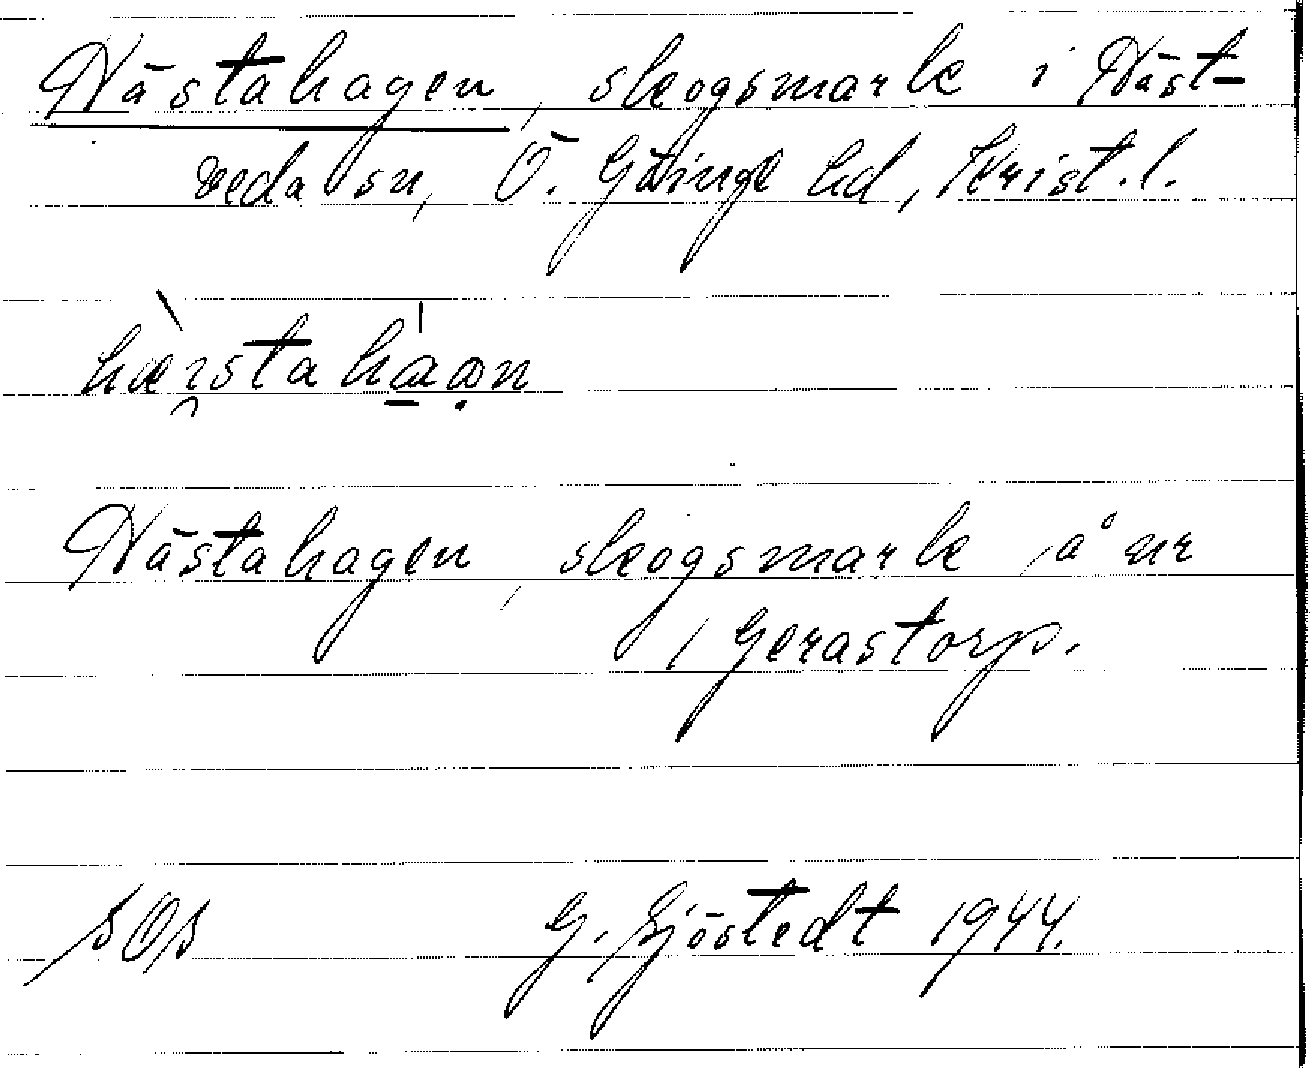 Hästahagen, skogsmark i Häst-
veda sn, Ö. Göinge hd, Krist. l.
Hästahagen, skogsmark å nr
1 Gerastorp.
SOS G. Sjöstedt 1944.